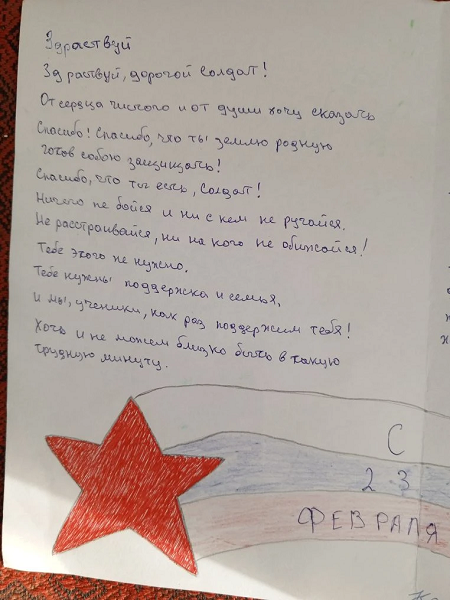 Здраствуй
Здраствуй, дорогой солдат!
От сердца чистого и от души хочу сказать
Спасибо! Спасибо, что ты землю родную
готов собою защищать!
Спасибо, что ты есть, Солдат!
Ничего не бойся и ни с кем не ругайся.
Не расстраивайся, ни на кого не обижайся!
Тебе этого не нужно.
Тебе нужны поддержка и семья,
и мы, ученики, как раз поддержим тебя!
Хоть и не можем близко быть в такую
трудную минуту.
С
23
ФЕВРАЛЯ